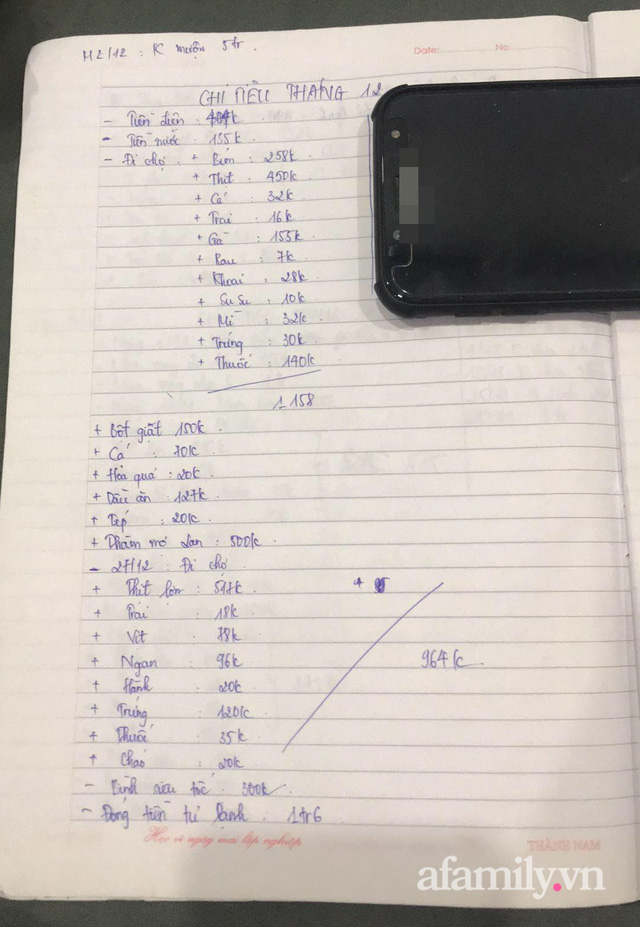 H2/12 : K mượn 5tr.
Date: No
CHI TIÊU THÁNG 12
- Tiền điện : k
- Tiền nước : 155k
- Đi chợ + Bỉm : 258k
+ Thịt : 450k
+ Cá : 32k
+ Trai : 16k
+ Gà : 155k
+ Rau : 7k
+ Khoai : 28k
+ Su Su : 10k
+ Mì : 32k
+ Trứng : 30k
+ Thuốc : 140k
1158
+ Bột giặt 150k
+ Cá : 70k
+ Hoa quả : 20k
+ Dầu ăn : 127k
+ Tép : 20k
+ : 500k
- 27/12 : Đi chợ
+ Thịt lợn : 517k
+ Trai : 18k
+ Vịt : 78k
+ Ngan : 96k
964k
+ Hành : 20k
+ Trứng : 120k
+ Thuốc : 35k
+ Cháo : 20k
- Bình siêu tốc : 300k
- Đóng tiền tủ lạnh : 1tr6
Học vì ngày mai lập nghiệp
THÀNH NAM
afamily.vn